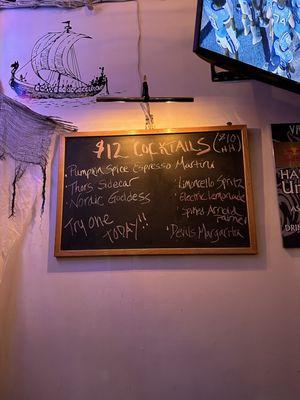 $12 COCKTAILS ($10 HH)
• Pumpkin Spice Espresso Martini
• Thors Sidecar
• Nordic Goddess
Try One
TODAY!!
• Limoncello Spritz
• Electric Lemonade
• Spiked Arnold
Palmer
• Devils Margarita